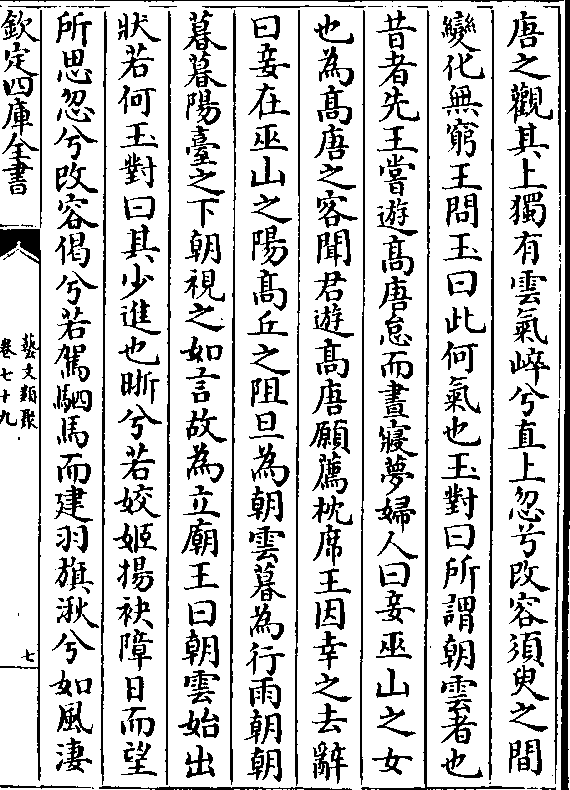 唐之觀其上獨有雲氣崪兮直上忽兮改容須臾之間
變化無窮王問玉曰此何氣也玉對曰所謂朝雲者也
昔者先王嘗遊髙唐怠而晝寢夢婦人曰妾巫山之女
也為髙唐之客聞君遊髙唐願薦枕席王因幸之去辭
曰妾在巫山之陽髙丘之阻旦為朝雲暮為行雨朝朝
暮暮陽臺之下朝視之如言故為立廟王曰朝雲始出
狀若何玉對曰其少進也晣兮若姣姬揚袂障日而望
所思忽兮改容偈兮若駕駟馬而建羽旗湫兮如風淒
欽定四庫全書
藝文類聚
卷七十九
七